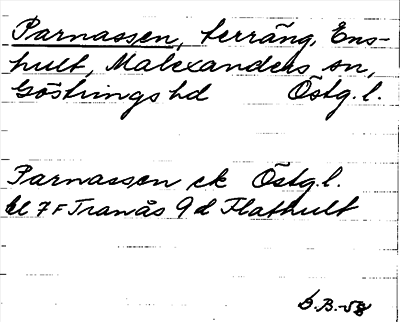 Parnassen, terräng, Ens-
hult, Malexanders sn,
Göstrings hd Östg.l.
Parnassen ek Östg.l.
bl 7F Tranås 9d Flathult
B.B.-58